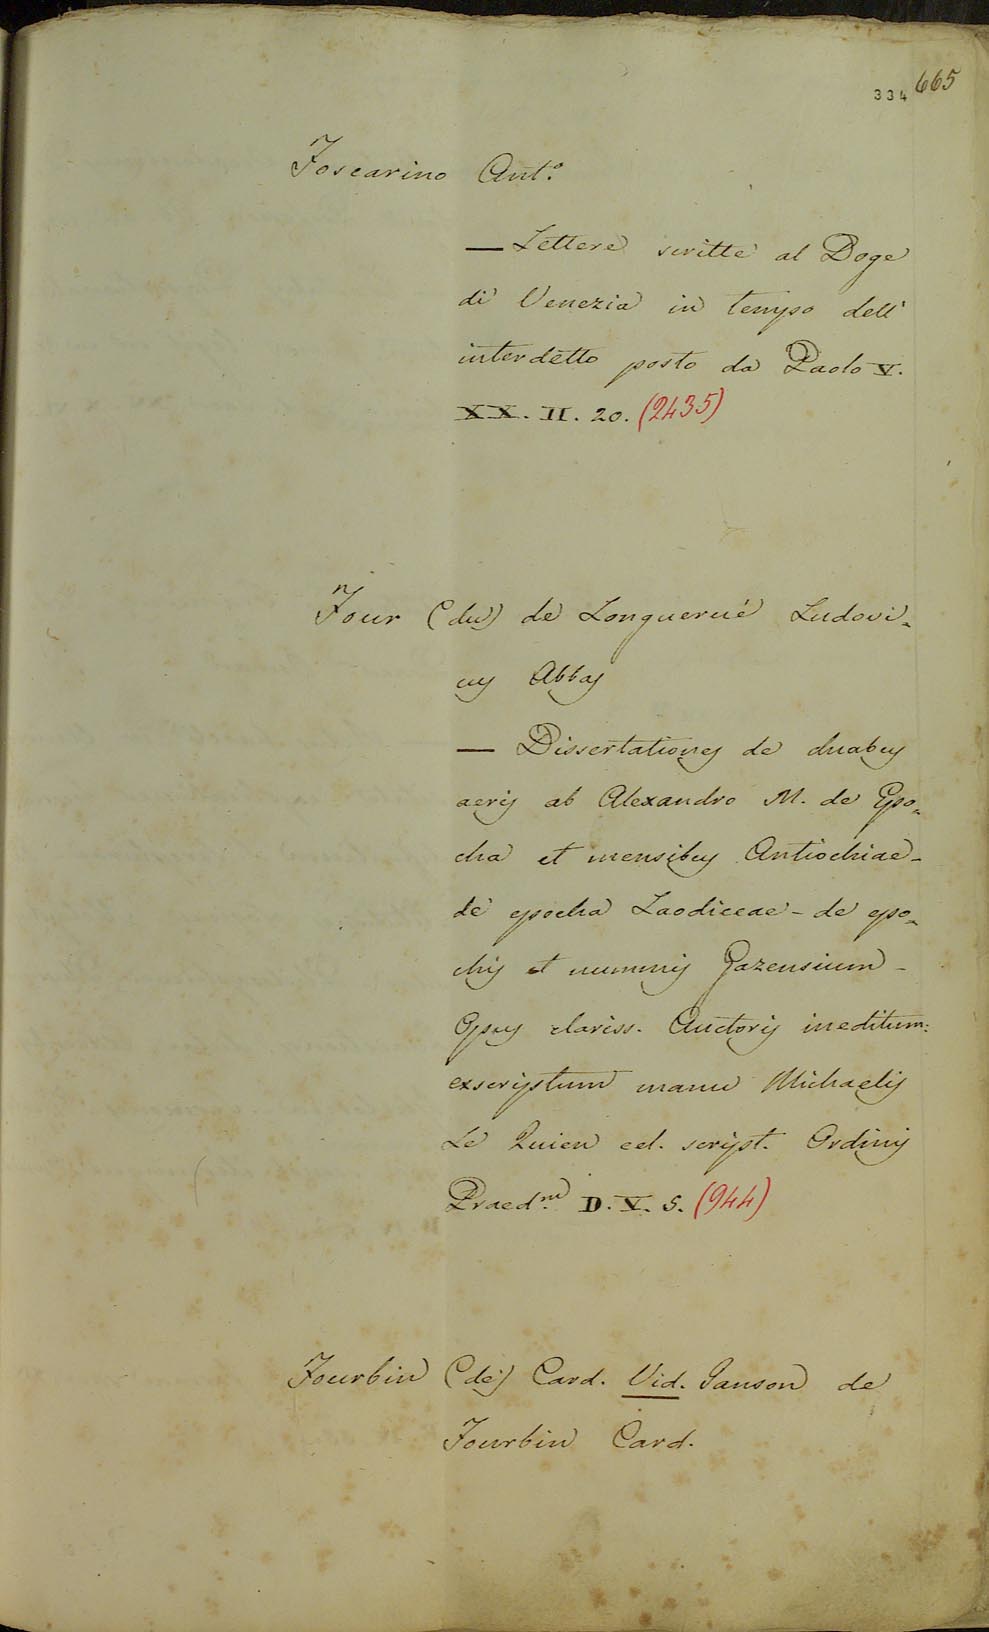 334 665
Foscarino Ant.o
— Lettere scritte al Doge
di Venezia in tempo dell'
interdetto posto da Paolo V.
XX. II. 20. (2435)
Four (du) de Longuerué Ludovi-
cus Abbas
— Dissertationes de duabus
aeris ab Alexandro M. de Epo-
cha et mensibus Antiochiae -
de epocha Laodiceae - de epo-
chis et nummis Gazensium -
Opus clariss. Auctoris ineditum:
exscriptum manu Michaelis
Le Quien cel. script. Ordinis
Praed.m D. V. 5. (944)
Fourbin (de) Card. Vid. Janson de
Fourbin Card.